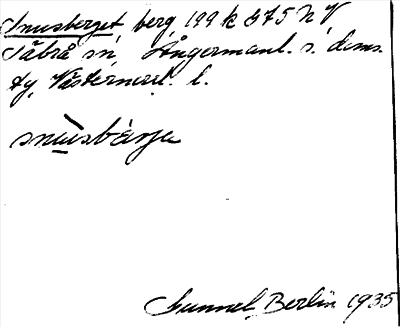 Snusberget, berg, 199 k 575 N V
Säbrå sn, Ångermanl. s. doms.
tg, Västernorrl. l.
snusbärje
Gunnel Berlin 1935